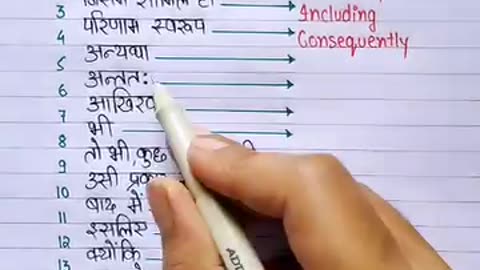 3 Including
4 परिणाम स्वरूप Consequently
5 अन्यथा
6 अन्ततः
7
8 भी
9 तो भी, कुछ
10 उसी
11 बाद में
12 इसलिए
13 क्योंकि